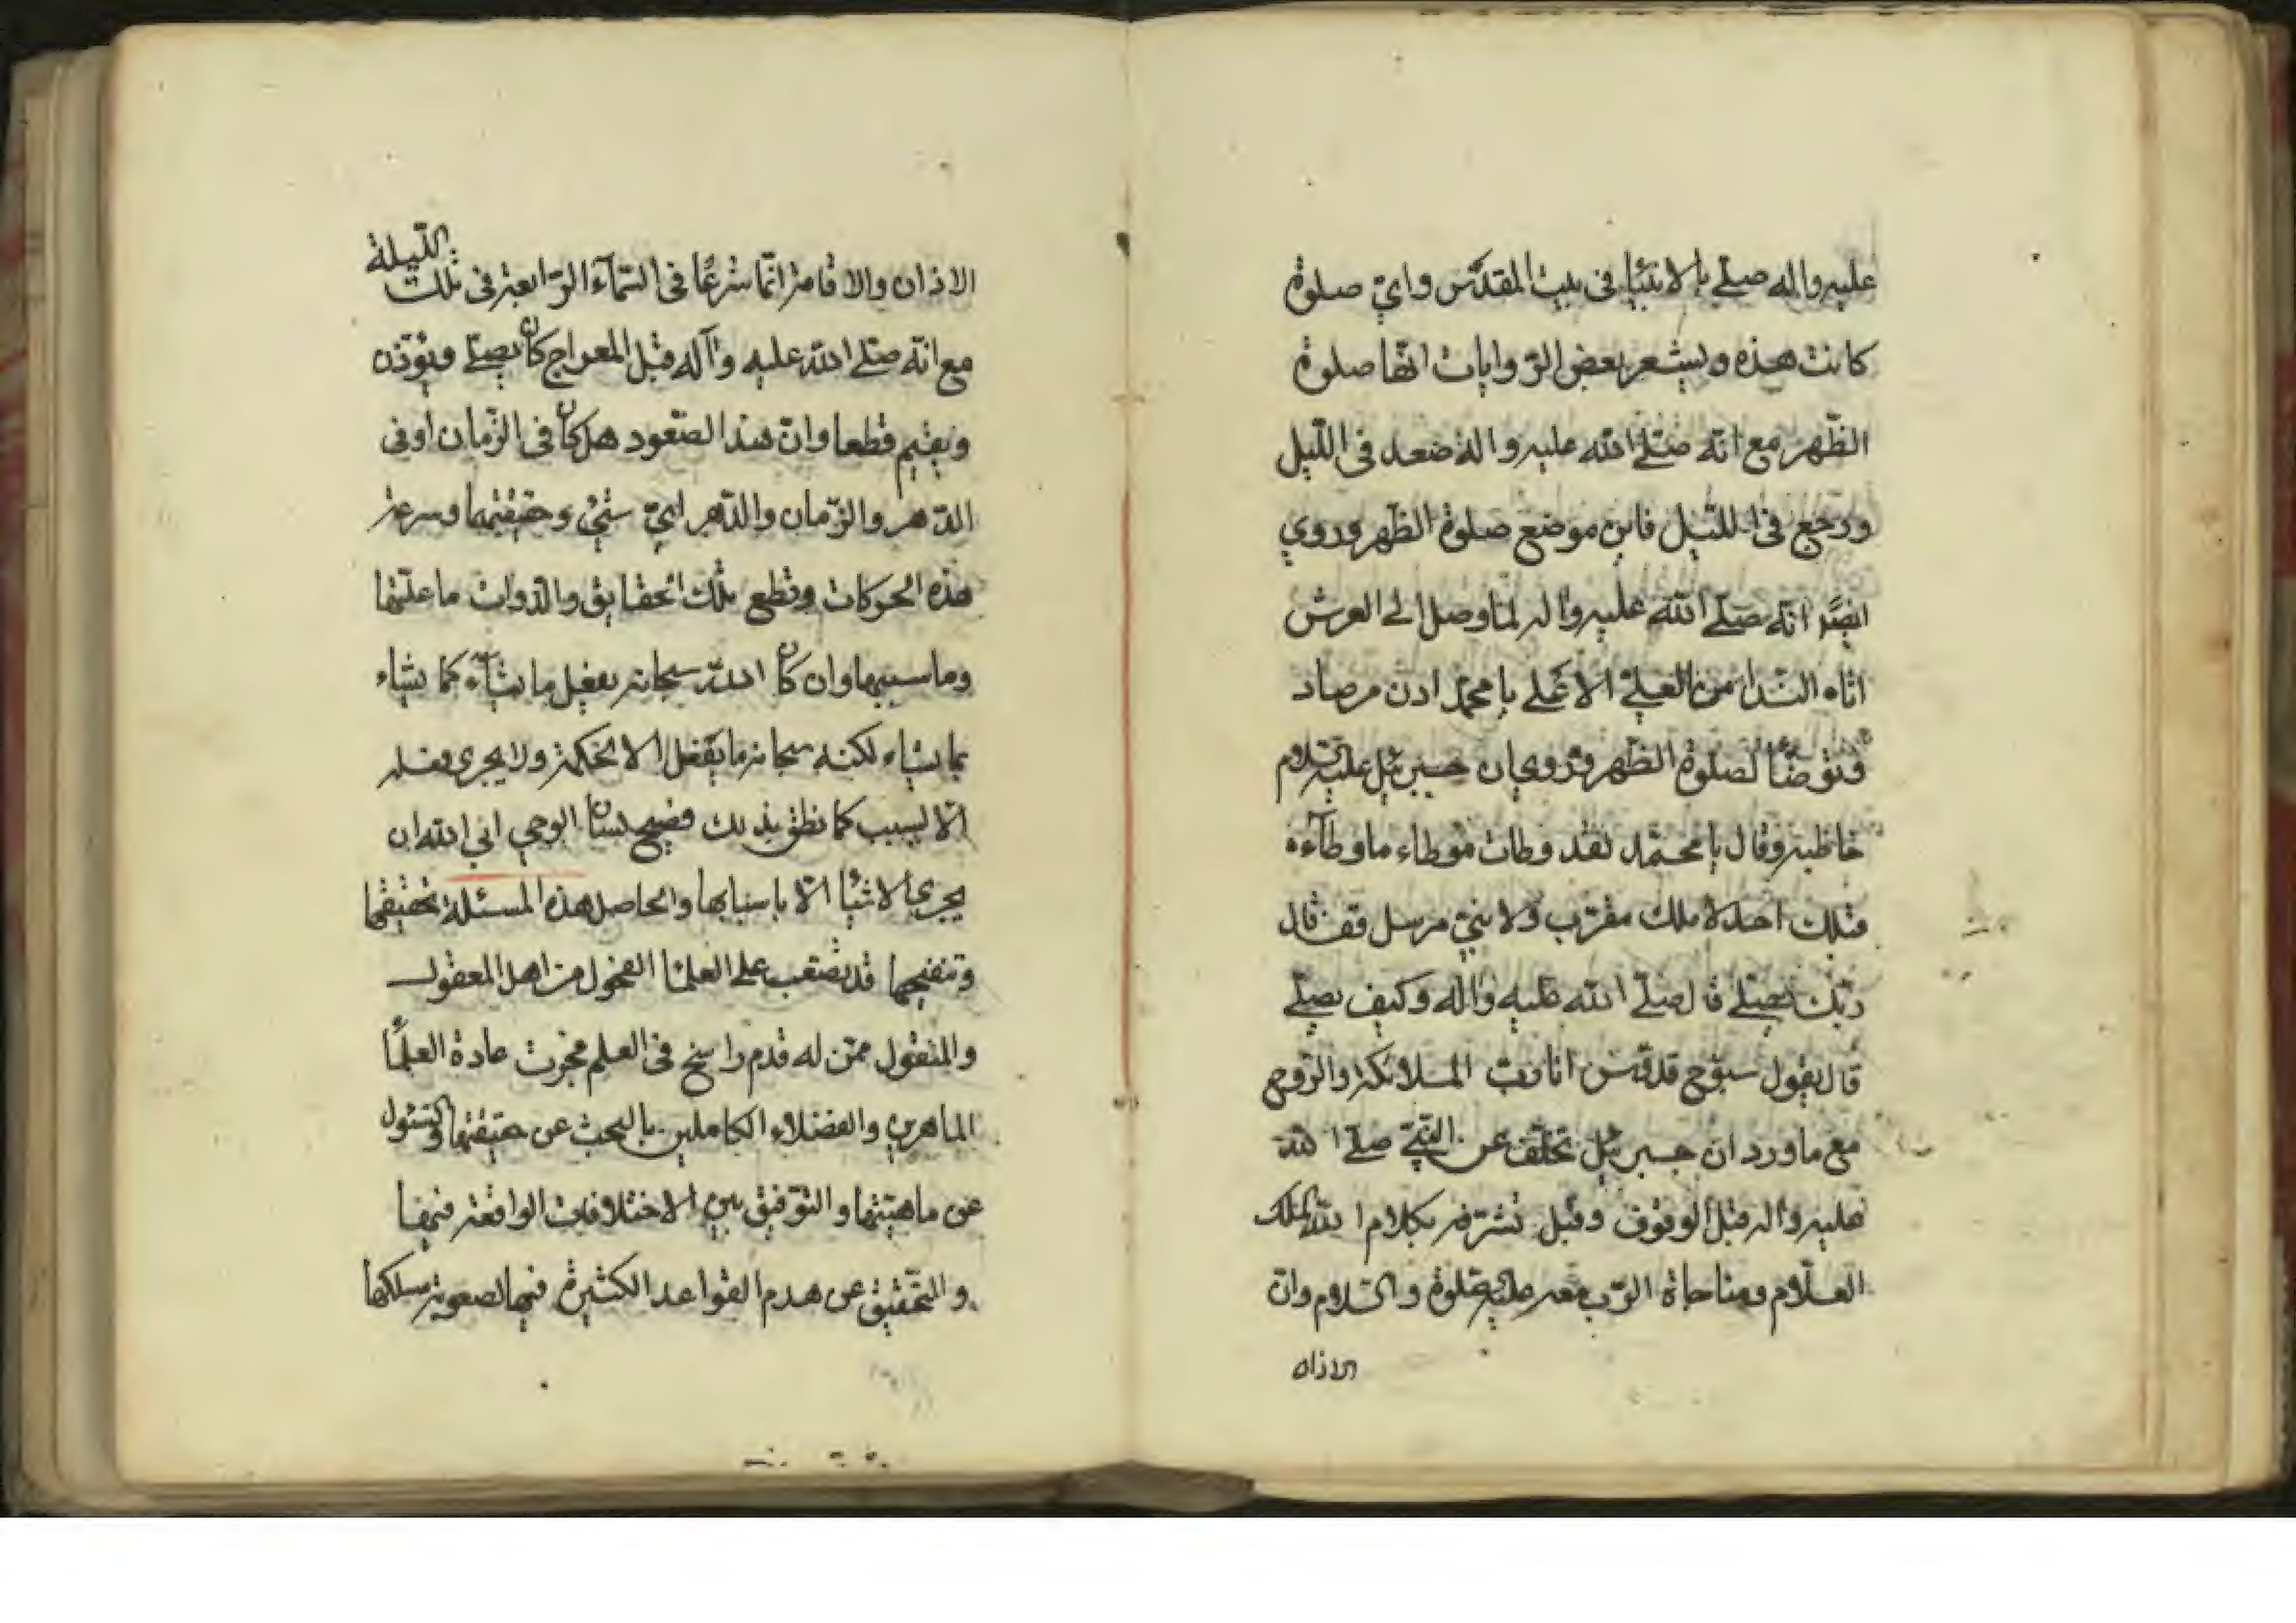 عليه واله صلى بالانبياء فى بيت المقدس واىّ صلوة
كانت هذه ويشعر بعض الرّوايات انّها صلوة
الظّهر مع انّه صلّى الله عليه واله صعد فى اللّيل
ورجع فى اللّيل فاين موضع صلوة الظّهر وروي
ايضًا انّه صلّى الله عليه واله لمّا وصل الى العرش
اتاه النّداء من العلىّ الاعلى يا محمّد ادن من صاد
وتوضّأ لصلوة الظّهر وروي ان جبرئيل عليه السّلام
خاطبه وقال يا محمّد لقد وطات موطاء ما وطاءه
قبلك احد لا ملك مقرّب ولا نبىّ مرسل فقف فان
ربّك يصلّى قال صلّى الله عليه واله وكيف يصلّى
قال يقول سبّوح قدّوس انا ربّ الملائكة والرّوح
مع ما ورد ان جبرئيل تخلّف عن النّبىّ صلّى الله
عليه واله قبل الوقوف وقبل تشرّفه بكلام الله الملك
العلّام ومناجاة الرّب معه عليه الصّلوة والسّلام وانّ
الاذان
الاذان والاقامة انّما شرعًا فى السّمآء الرّابعة فى تلك اللّيلة
مع انّه صلّى الله عليه وآله قبل المعراج كان يصلّى ويؤذّن
ويقيم قطعا وانّ هذا الصّعود هل كان فى الزّمان او فى
الدّهر والزّمان والدّهر اىّ شئ وحقيقتهما وسرعة
هذه الحركات وقطع تلك الحقايق والذوات ما علّتها
وما سببها وان كان الله سبحانه يفعل ما يشآء كما يشاء
بما يشاء لكنه سبحانه ما يفعل الا بحكمة ولا يجرى فعله
الّا بسبب كما نطق بذلك فصيح لسان الوحي ابي الله ان
يجري الاشيا الّا باسبابها والحاصل هذه المسئلة تحقيقها
وتنقيحها قد يصعب على العلمآ الفحول من اهل المعقول
والمنقول ممّن له قدم راسخ فى العلم فجرت عادة العلمآ
الماهرين والفضلاء الكاملين بالبحث عن حقيقتها والسّئول
عن ماهيّتها والتّوفيق بين الاختلافات الواقعة فيها
والتّحقيق عن هدم القواعد الكثيرة فيها لصعوبة مسلكها